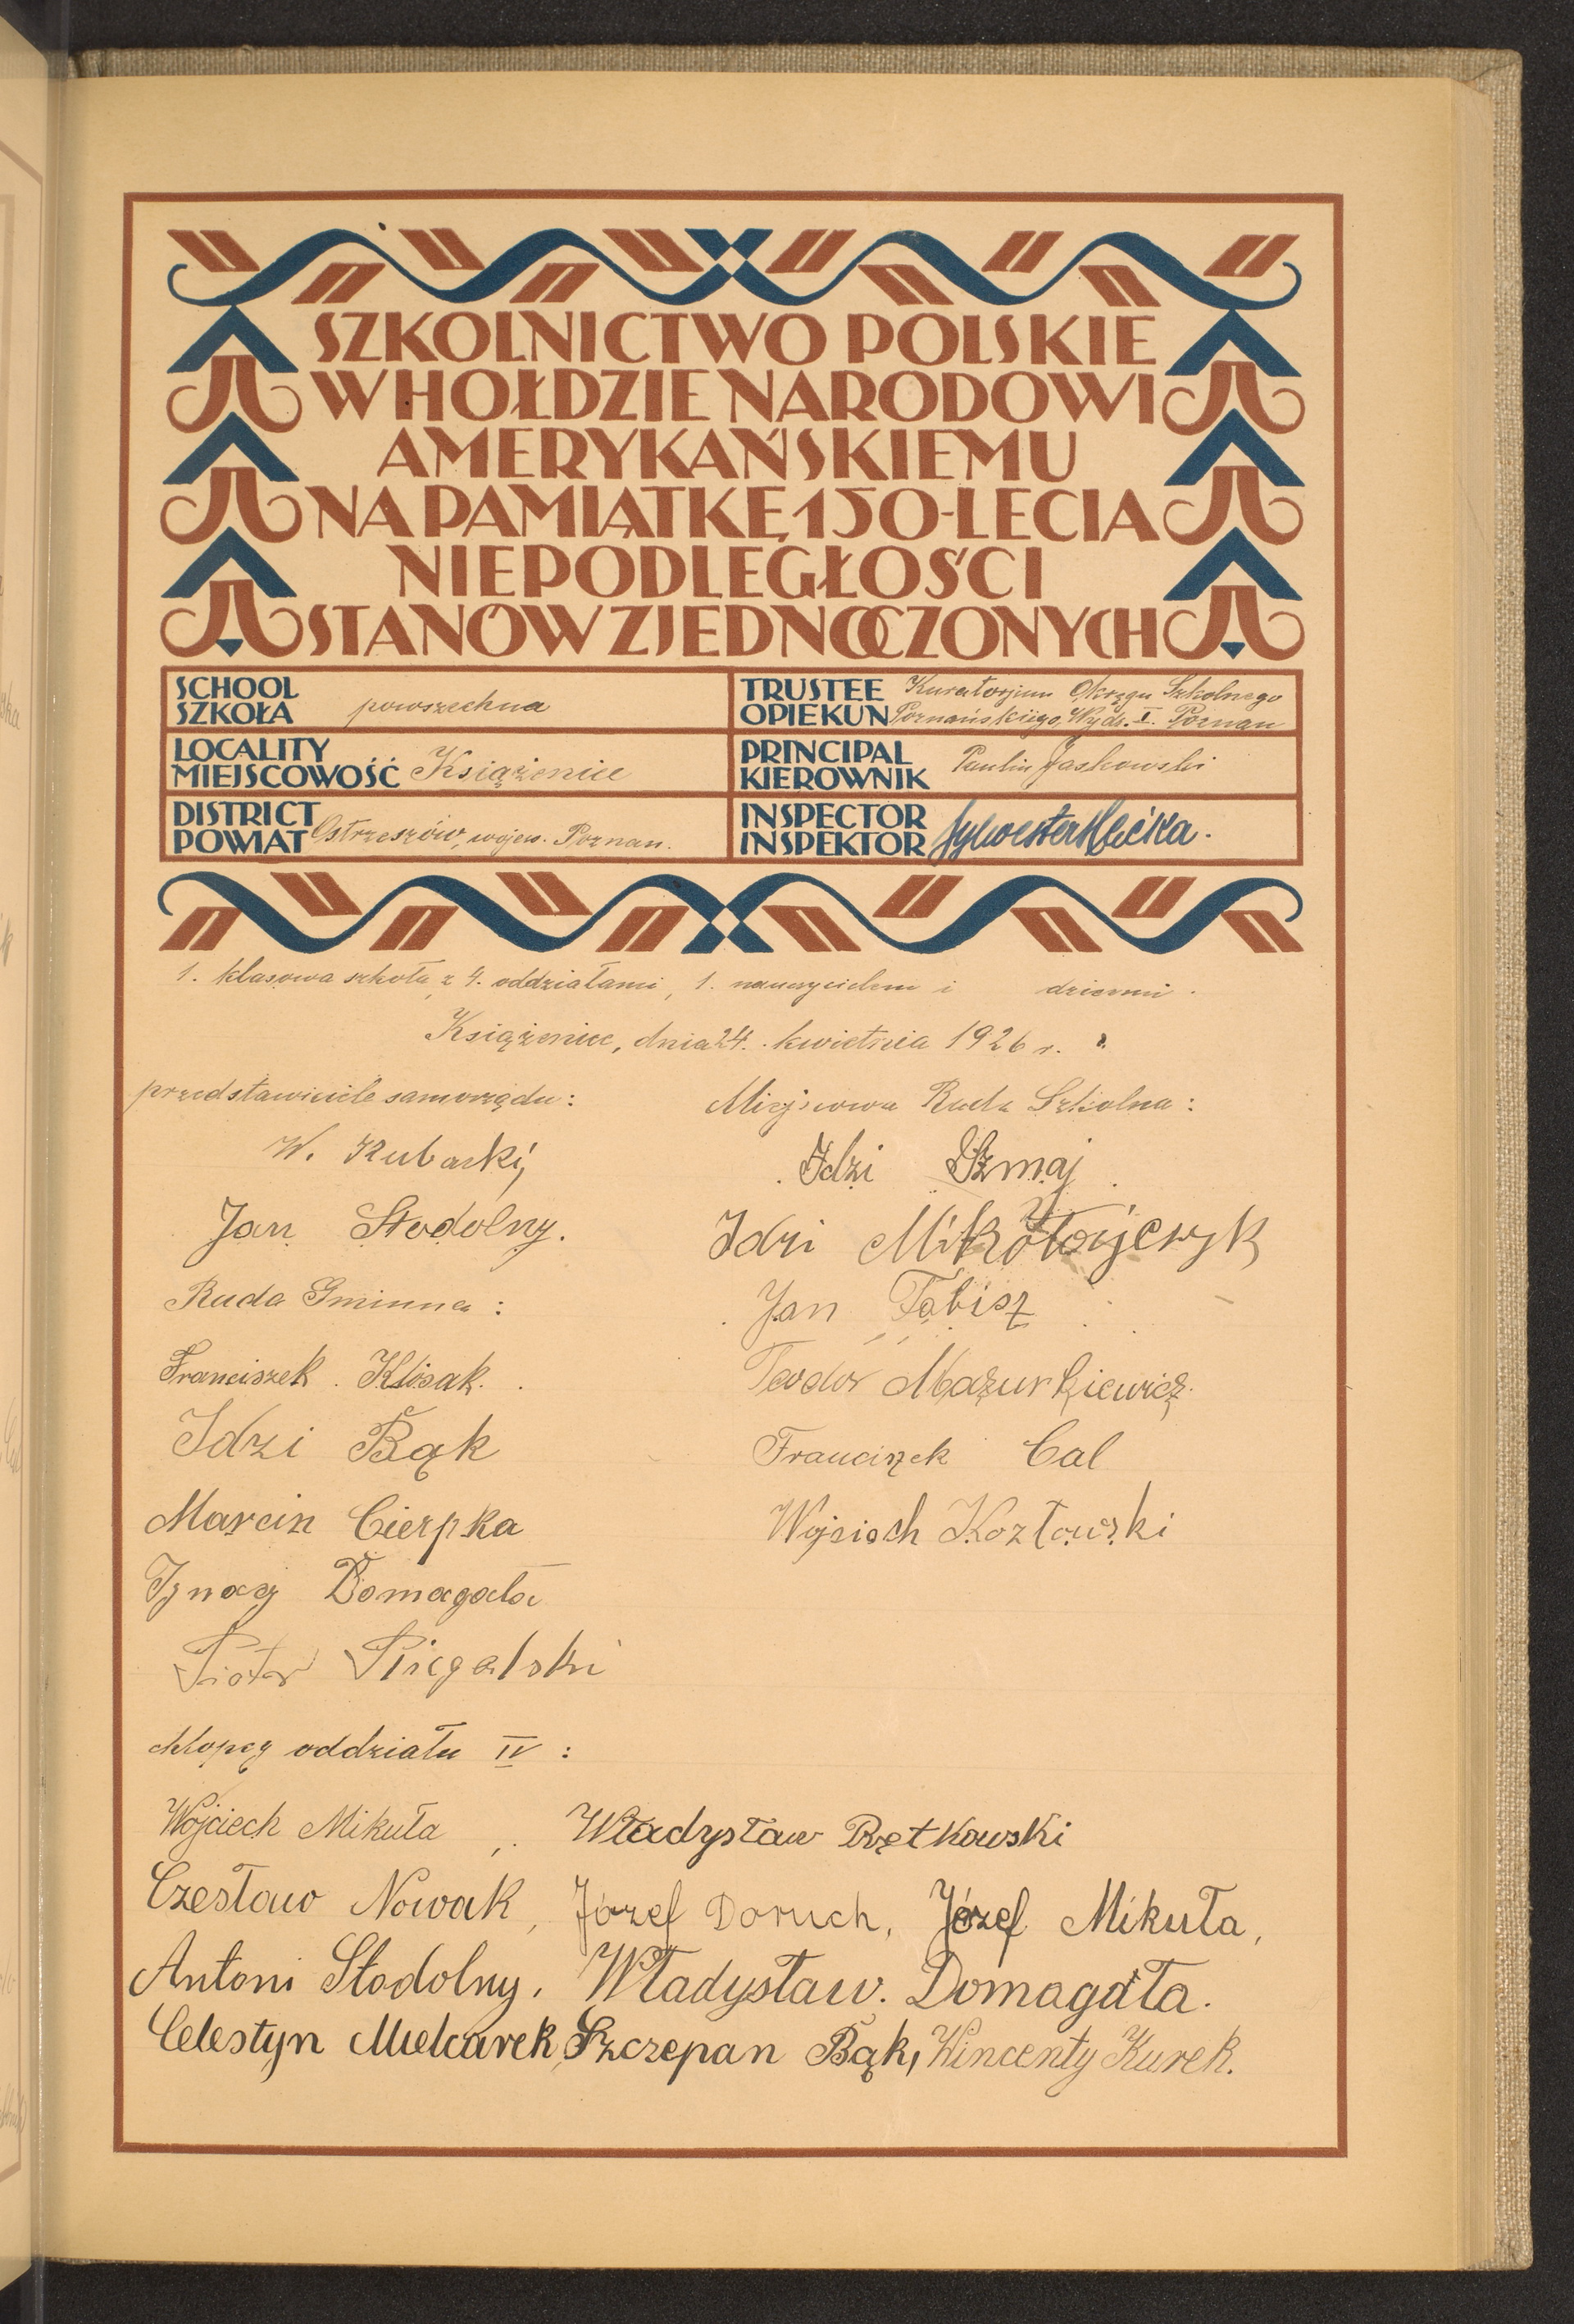 SZKOLNICTWO POLSKIE
W HOŁDZIE NARODOWI
AMERYKAŃSKIEMU
NA PAMIĄTKĘ 150-LECIA
NIEPODLEGŁOŚCI
STANÓW ZJEDNOCZONYCH
SCHOOL
SZKOŁA powszechna
TRUSTEE Kuratorjum Okręgu Szkolnego
OPIEKUN Poznańskiego, Wydz. I. Poznan
LOCALITY
MIEJSCOWOŚĆ Książenice
PRINCIPAL
KIEROWNIK Paulin Jaskowski
DISTRICT
POWIAT Ostrzeszów, wojew. Poznan.
INSPECTOR
INSPEKTOR Sylwester
1. klasowa szkoła z 4. oddziałami, 1. nauczycielem i dziećmi.
Książenice, dnia 24. kwietnia 1926 r.
przedstawiciele samorządu:
W. Kubacki,
Jan Stodolny.
Rada Gminna:
Franciszek Kłósak.
Idzi Bąk
Marcin Cierpka
Ignacy Domagała
Piotr Piegalski
Miejscowa Rada Szkolna:
Idzi Szmaj
Idzi Mikołajczyk
Jan Tobisz
Teodor Mazurkiewicz.
Franciszek Cal
Wojciech Kozłowski
chłopcy oddziału IV:
Wojciech Mikuła, Władysław Prętkowski
Czesław Nowak, Józef Doruch, Józef Mikuła,
Antoni Stodolny, Władysław Domagała.
Celestyn Mielcarek, Szczepan Bąk, Wincenty Kurek.